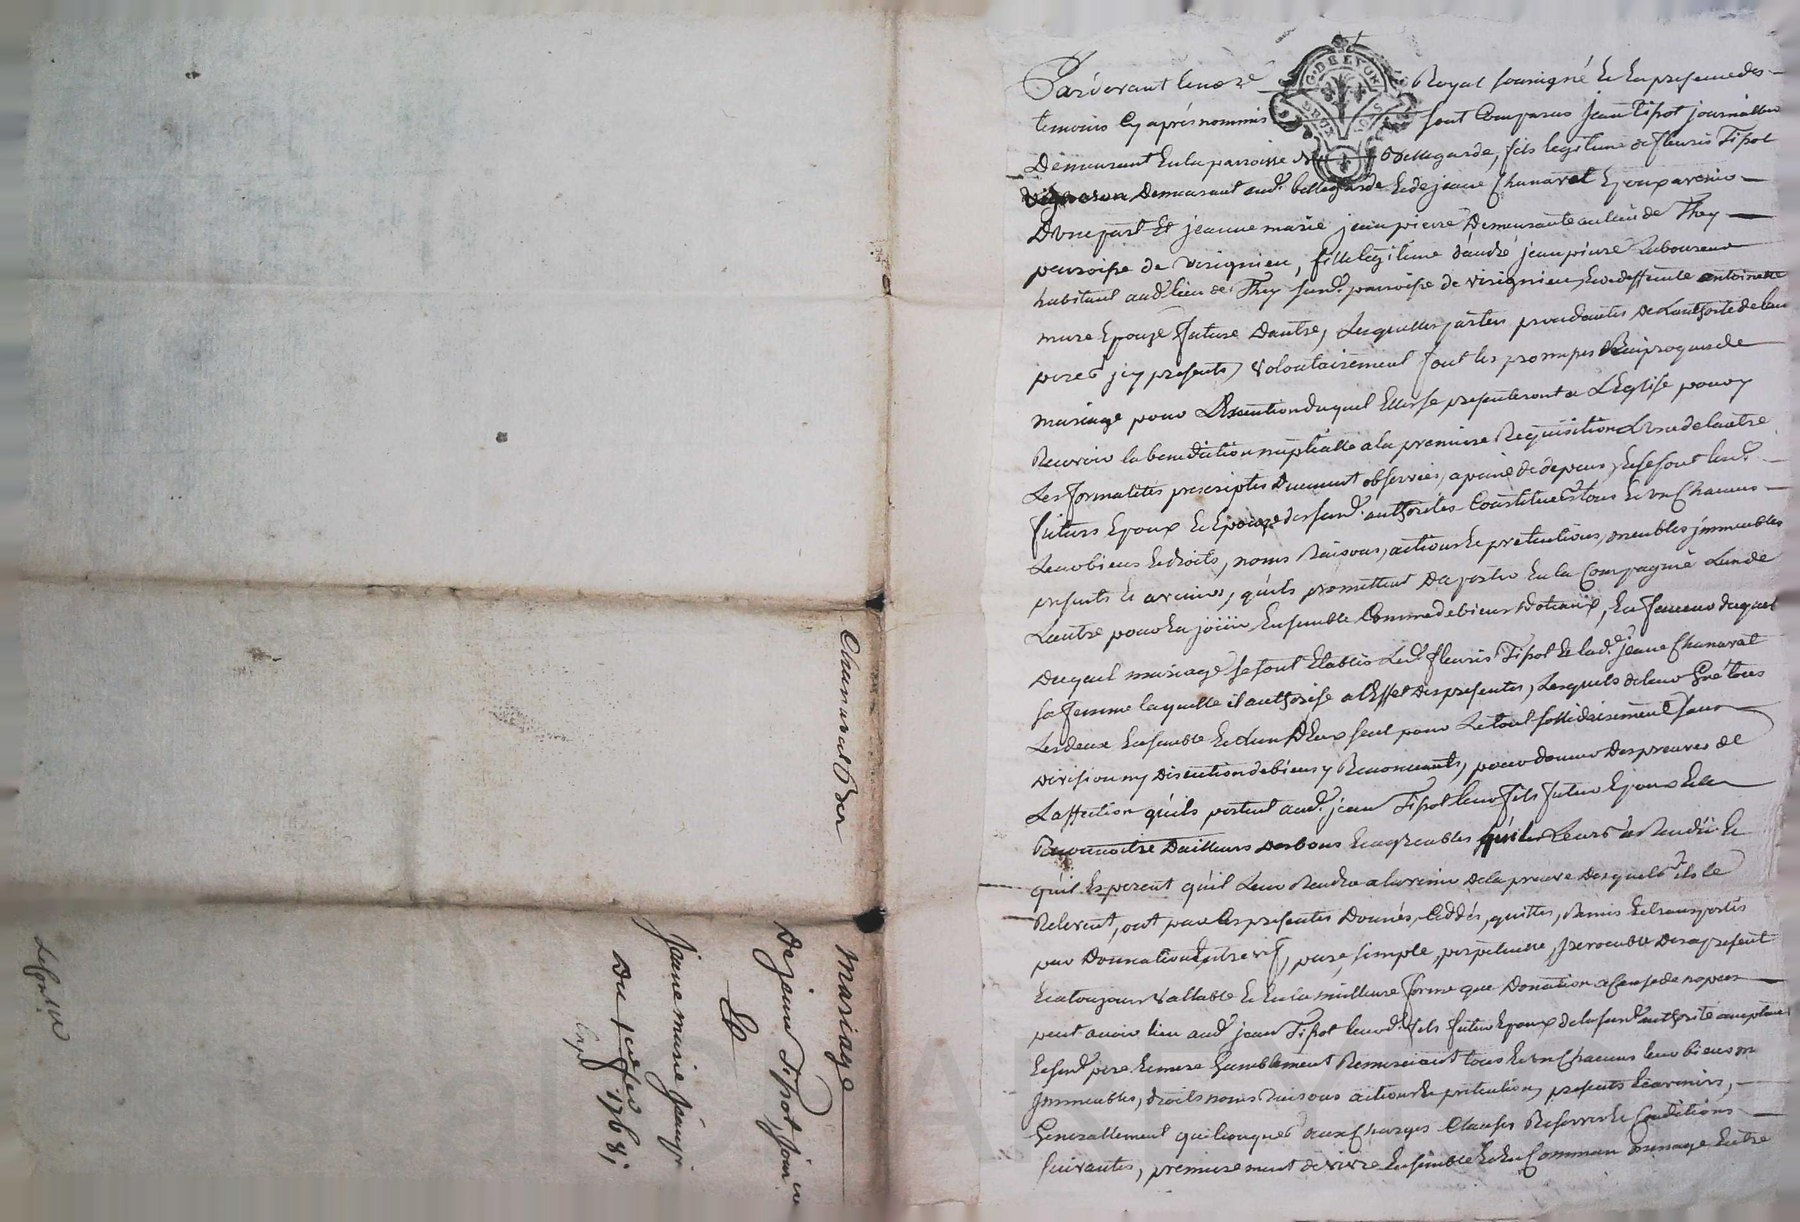 Pardevant le no.re Royal soussigné Et En presence des
temoins Cy aprés nommés sont Comparus Jean Tipot journallier
Demeurant En la parroisse de Bellegarde, fils legitime de fleuris Tipot
vigneron Demeurant aud.t bellegarde Et de jeane Chanavat Epoux avenir
D'une part Et jeanne marie jeanpierre Demeurante au lieu de They
parroisse de virignieu, fille legitime d'andré jeanpierre Laboureur
habitant aud.t lieu de They susd.t parroisse de virignieu, Et de deffunte antoinette
mure Epouze future D'autre, Lesquelles parties procedantes De L'authorité de leur
peres icy presents, volontairement font les promesses Reciproques de
mariage pour L'Execution duquel Elles se presenteront a L'Eglise pour y
Recevoir la benediction nuptialle a la premiere Requisition L'une de lautre
Les formalités prescriptes Duement observées, a peine de depens, Et se sont lesd.ts
futurs Epoux Et Epouze des susd.t authorités Constitués tous Et un Chacuns
Leurs biens Et droits, noms Raisons, actions Et pretentions, meubles jmmeubles
presents Et avenirs, qu'ils promettent De porter En la Compagnie L'un de
L'autre pour En joüir Ensemble Comme de biens Dotaux, En faveur duquel
Duquel mariage se sont Etablis Led.t fleuris Tipot Et lad.e jeane Chanavat
sa femme laquelle il authorise a l'Effet Des presentes, Lesquels de leur Gré tous
Les deux Ensemble Et L'un D'Eux seul pour Le tout sollidairement sans
Division ny Discution de biens y Renonceants, pour donner Des preuves de
L'affection qu'ils portent aud.t jean Tipot leur fils futur Epoux Et le
Reconnoitre D'ailleurs Des bons Et agreables qu'il Leurs à Rendü Et
qu'il Esperent qu'il Leur Rendra a l'avenir De la preuve Desquels ils le
Relevent, ont par Ces presentes Donnés, Ceddés, quittes, Remis Et transportés
par Donnation Entre vif, pure, simple, perpetuelle, jrrevocable Des a present
Et a toujours vallable Et En la meilleure forme que Donation a Cause de nopces
peut avoir lieu aud.t jean Tipot leurd.t fils futur Epoux de la susd.t authorité
Et susd.t pere Et mere humblement Remerciant tous Et un Chacuns leur biens m
Jmmeubles, droits noms Raisons actions Et pretention, presents Et avenirs,
Generallement quelconques aux Charges Clauses Reserves Et Conditions
suivantes, premierement de vivre Ensemble Et En Commun menage Entre
G. DE LYON
Chanavat
Mariage
De jean Tipot, jour
Et
Jeane marie Jeanpi
Du 1768;
Exp.